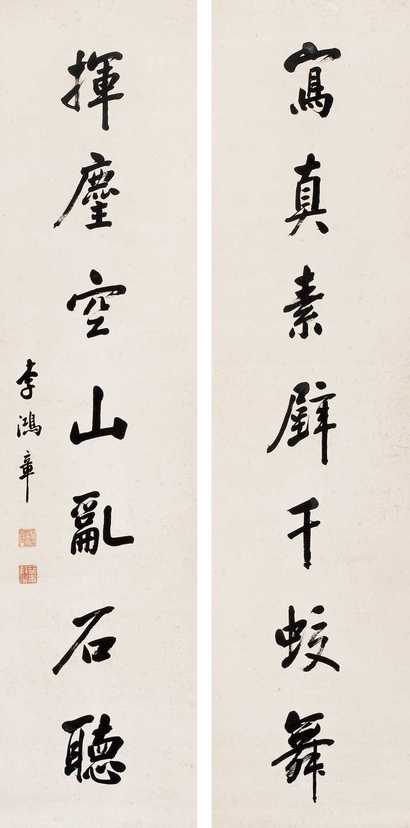 寫真素壁千蛟舞
揮麈空山亂石聽
李鴻章